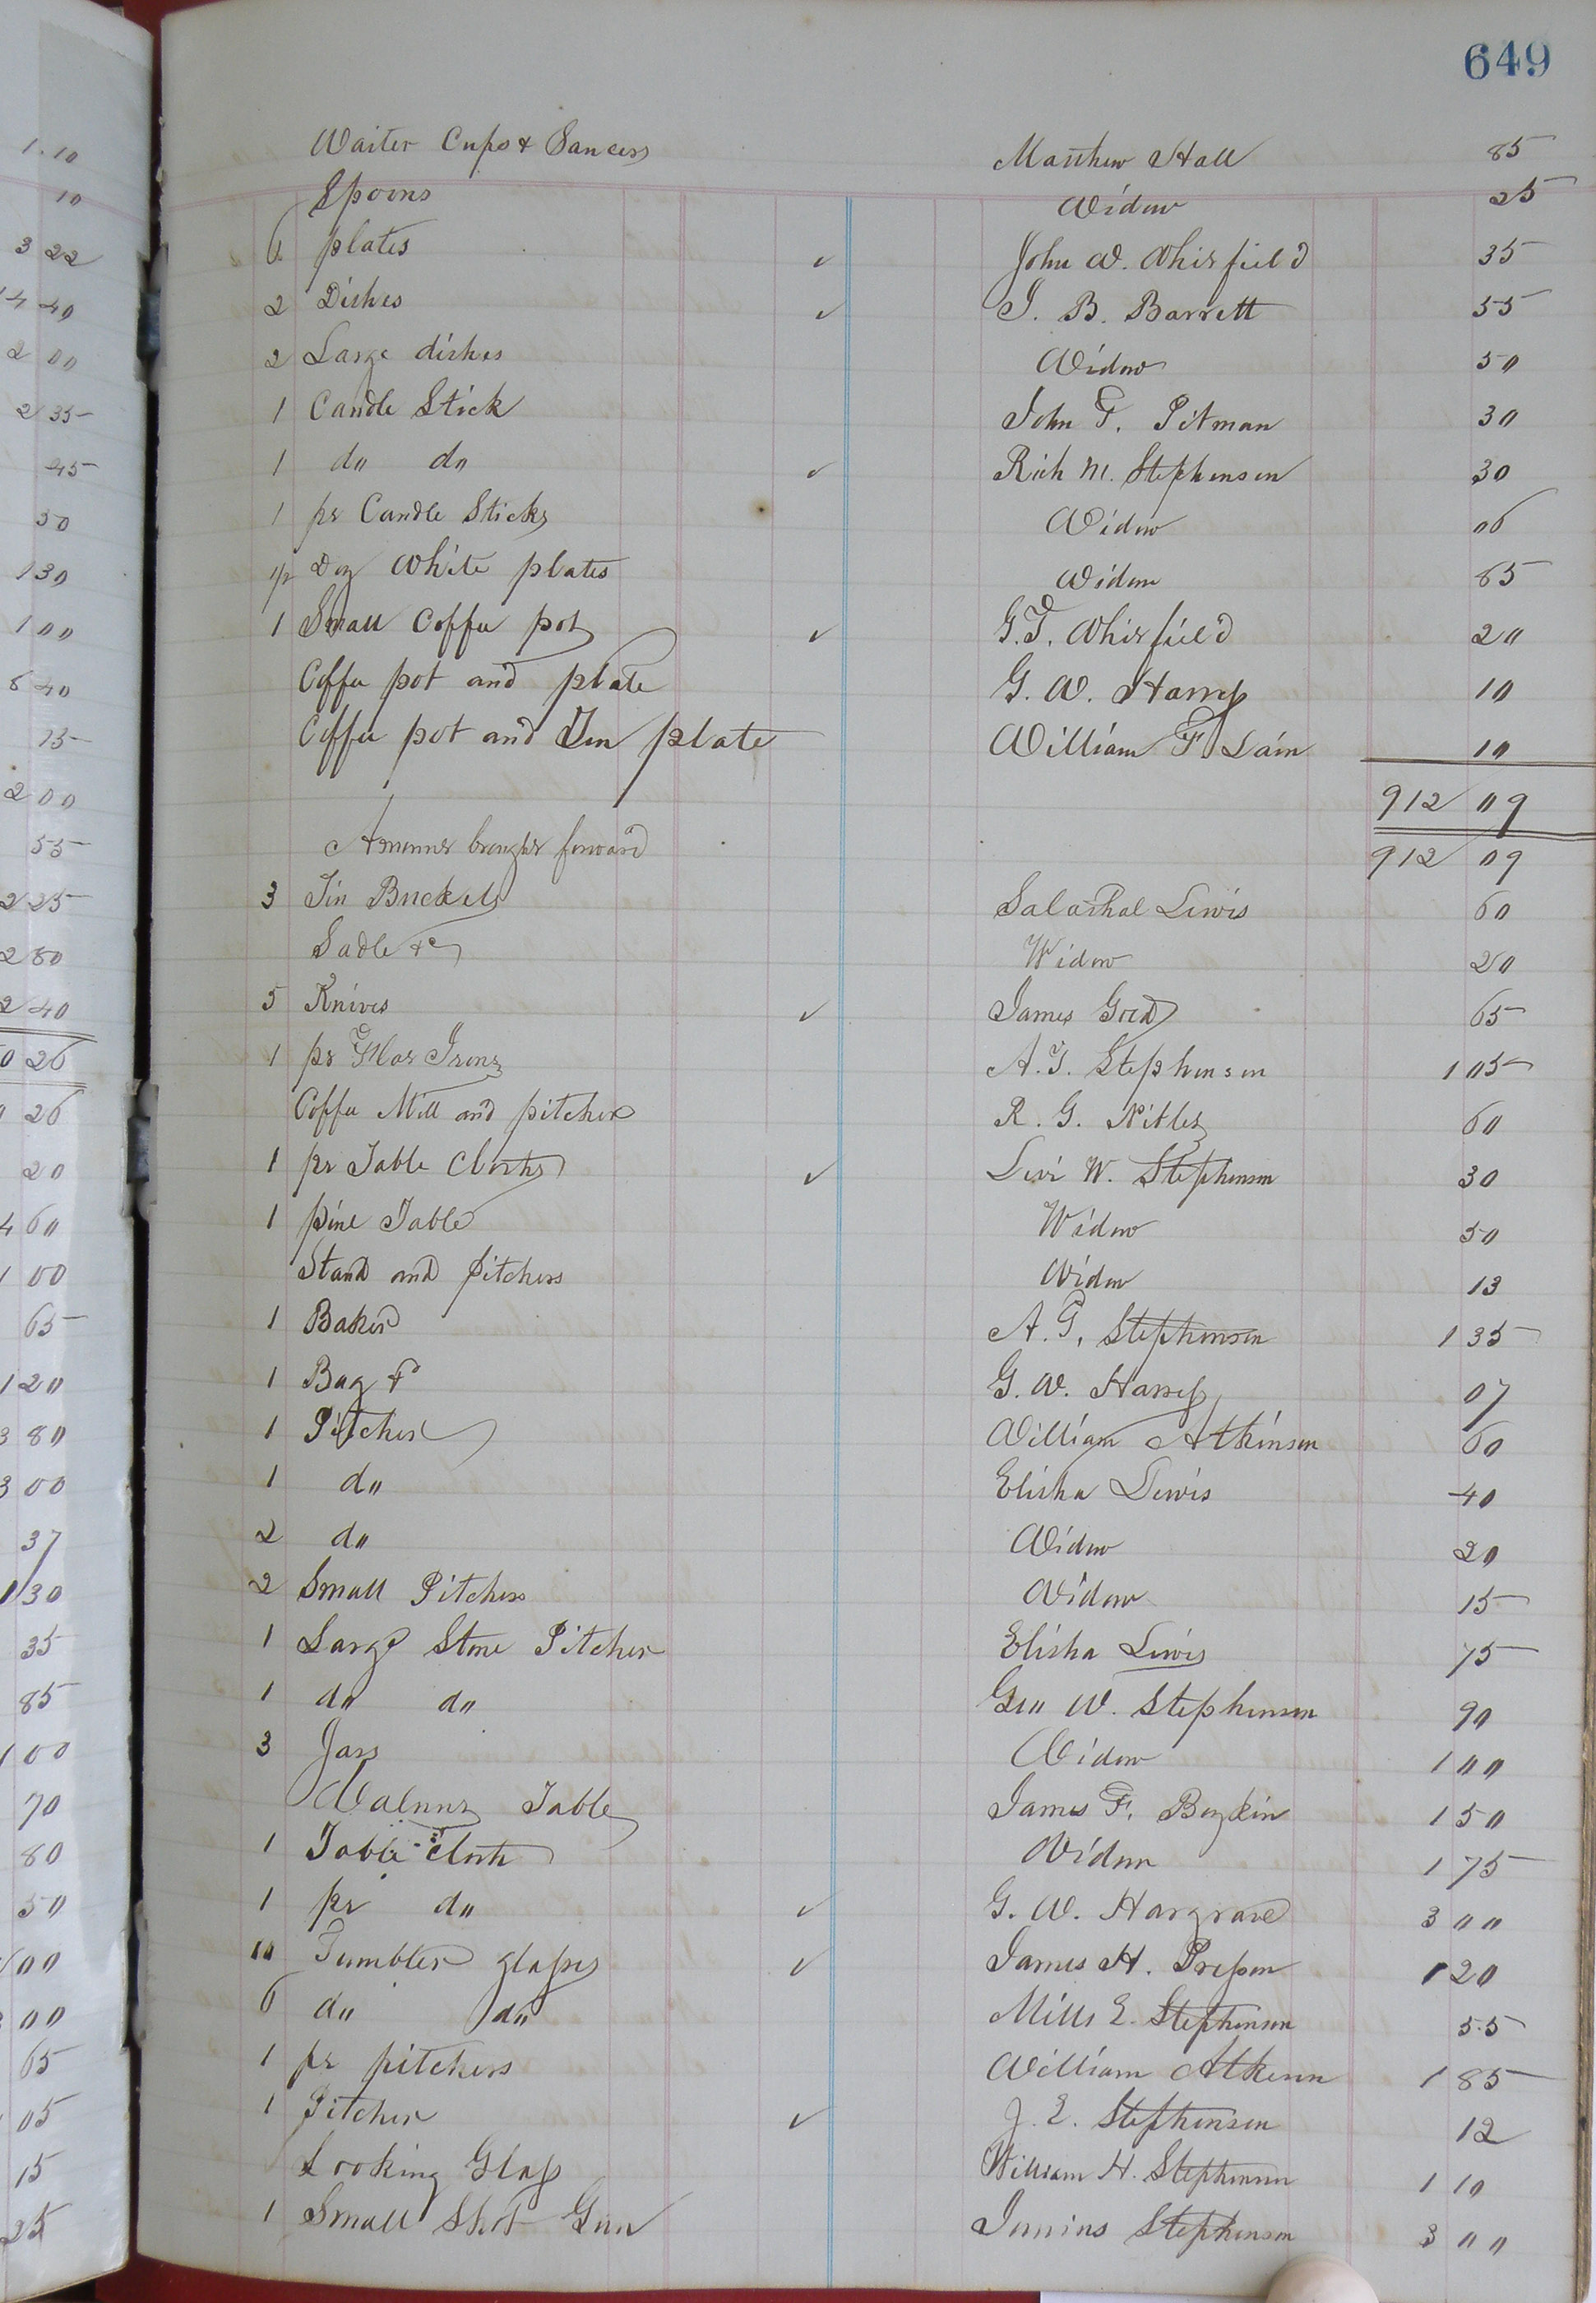 649
1.10
10
3 22
4 40
2 00
2 35
45
50
1 30
1 00
8 40
15
2 00
55
2 25
2 80
2 40
0 26
26
20
4 60
1 00
65
1 20
3 80
3 00
37
1 30
35
85
1 00
70
80
50
00
00
65
05
15
25
Waiter Cups & Saucers Matthew Hall 85
Spoons Widow 25
6 plates ✓ John W. Whitfield 35
2 Dishes ✓ J. B. Barrett 55
2 Large dishes Widow 50
1 Candle Stick John F. Pitman 30
1 do do ✓ Rich M. Stephenson 30
1 pr Candle Sticks Widow 06
1/2 Doz White plates Widow 85
1 Small Coffee pot ✓ G. T. Whitfield 20
Coffee pot and plate G. W. Harress 10
Coffee pot and Tin plate William F. Lain 10
912 09
Amount brought forward 912 09
3 Tin Buckets Salathal Lewis 60
Sadle &c Widow 20
5 Knives ✓ James Goed 65
1 pr Flat Irons A. T. Stephenson 1 05
Coffee Mill and pitcher R. G. 60
1 pr Table Cloths ✓ Levi W. Stephenson 30
1 pine Table Widow 50
Stand and Pitchers Widow 13
1 Baker A. T. Stephenson 1 35
1 Bag &c G. W. Harress 07
1 Pitcher William Atkinson 60
1 do Elisha Lewis 40
2 do Widow 20
2 Small Pitchers Widow 15
1 Large Stone Pitcher Elisha Lewis 75
1 do do Geo W. Stephenson 90
3 Jars Widow 1 00
Walnut Table James F. Boykin 1 50
1 Table Cloth Widow 1 75
1 pr do ✓ G. W. Hargrave 3 00
10 Tumbler glasses ✓ James H. Presson 1 20
6 do do Mills E. Stephenson 55
1 pr pitchers William Atkenn 1 85
1 Pitcher ✓ J. E. Stephenson 12
Looking Glass William H. Stephenson 1 10
1 Small Shot Gun Junius Stephenson 3 00